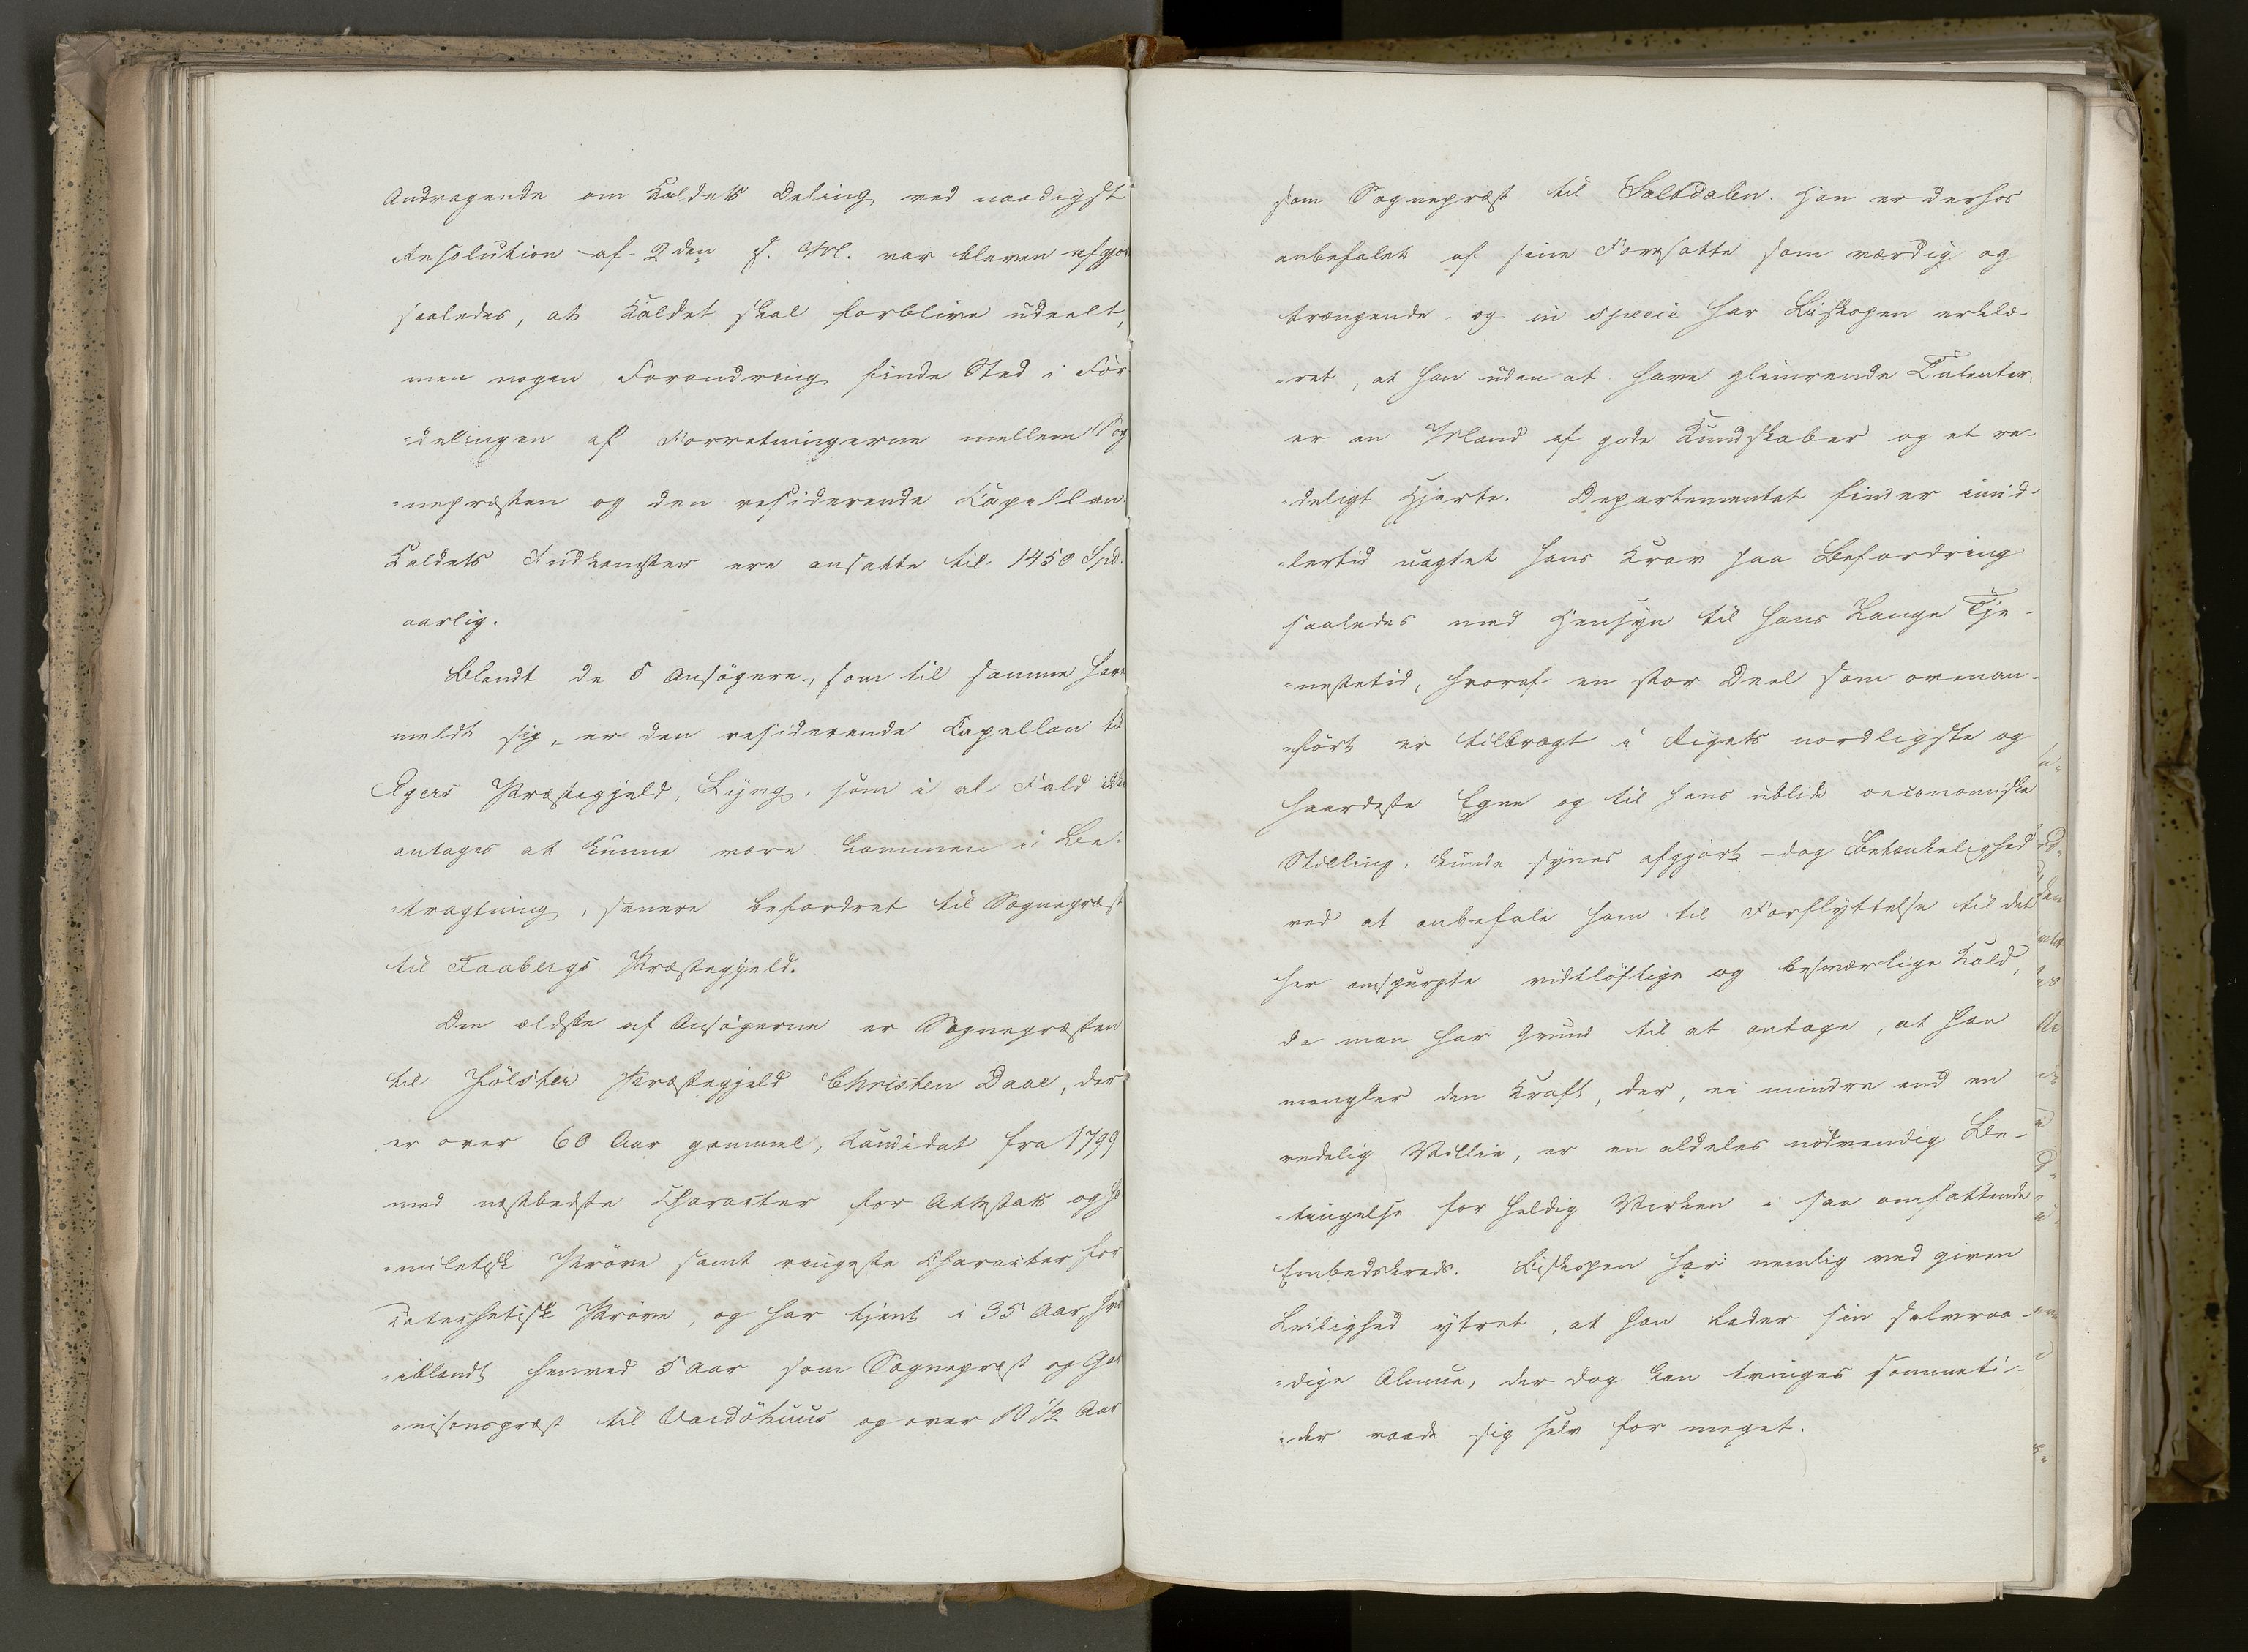 Andragende om Kaldets Deling ved naadigst
Resolution af 2den f. M. var bleven afgjor
saaledes, at Kaldet skal forblive udeelt,
men nogen Forandring finde Sted i For
-delingen af Forretningerne mellem Sog
-nepræsten og den residerende Capellan.
Kaldets Indkomster ere ansatte til 1450 Spd.
aarlig.
Blandt de 5 Ansögere, som til samme have
meldt sig, er den residerende Capellan til
Egers Præstegjeld, Lyng, som i al Fald ikke
antages at kunne være kommen i Be-
-tragtning, senere befordret til Sognepræst
til Faabergs Præstegjeld.
Den ældste af Ansögerne er Sognepræsten
til Jölster Præstegjeld Christen Daae, der
er over 60 Aar gammel, Candidat fra 1799
med næstbedste Charakter for Attestats og ho
-miletisk Pröve samt ringeste Charakter for
catechetisk Pröve, og har tjent i 35 Aar, hvor
-iblandt henved 5 Aar som Sognepræst og Gar
-nisonspræst til Vardöhuus og over 10 1/2 Aar
som Sognepræst til Saltdalen. Han er derhos
anbefalet af sine Foresatte som værdig og
trængende og in specie har Biskopen erklæ-
-ret, at han uden at have glimrende Talenter,
er en Mand af gode Kundskaber og et re-
-deligt Hjerte. Departementet finder imid-
-lertid uagtet hans Krav paa Befordring
saaledes med Hensyn til hans lange Tje-
-nestetid, hvoraf en stor Deel som ovenan-
-fört er tilbragt i Rigets nordligste og
haardeste Egne og til hans ublide oeconomiske
Stilling, kunde synes afgjort - dog Betænkelighed
ved at anbefale ham til Forflyttelse til det
her omspurgte vidtlöftige og besværlige Kald,
da man har Grund til at antage, at han
mangler den Kraft, der, ei mindre end en
redelig Villie, er en aldeles nödvendig Be-
-tingelse for heldig Virken i saa omfattende
Embedskreds. Biskopen har nemlig ved given
Leilighed ytret, at han lader sin selvraa-
-dige Almue, der dog kan tvinges sommeti-
-der raade sig selv for meget.